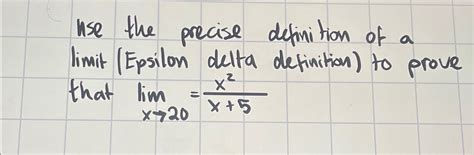 use the precise definition of a
limit (Epsilon delta definition) to prove
that lim x→20 = x²/x+5